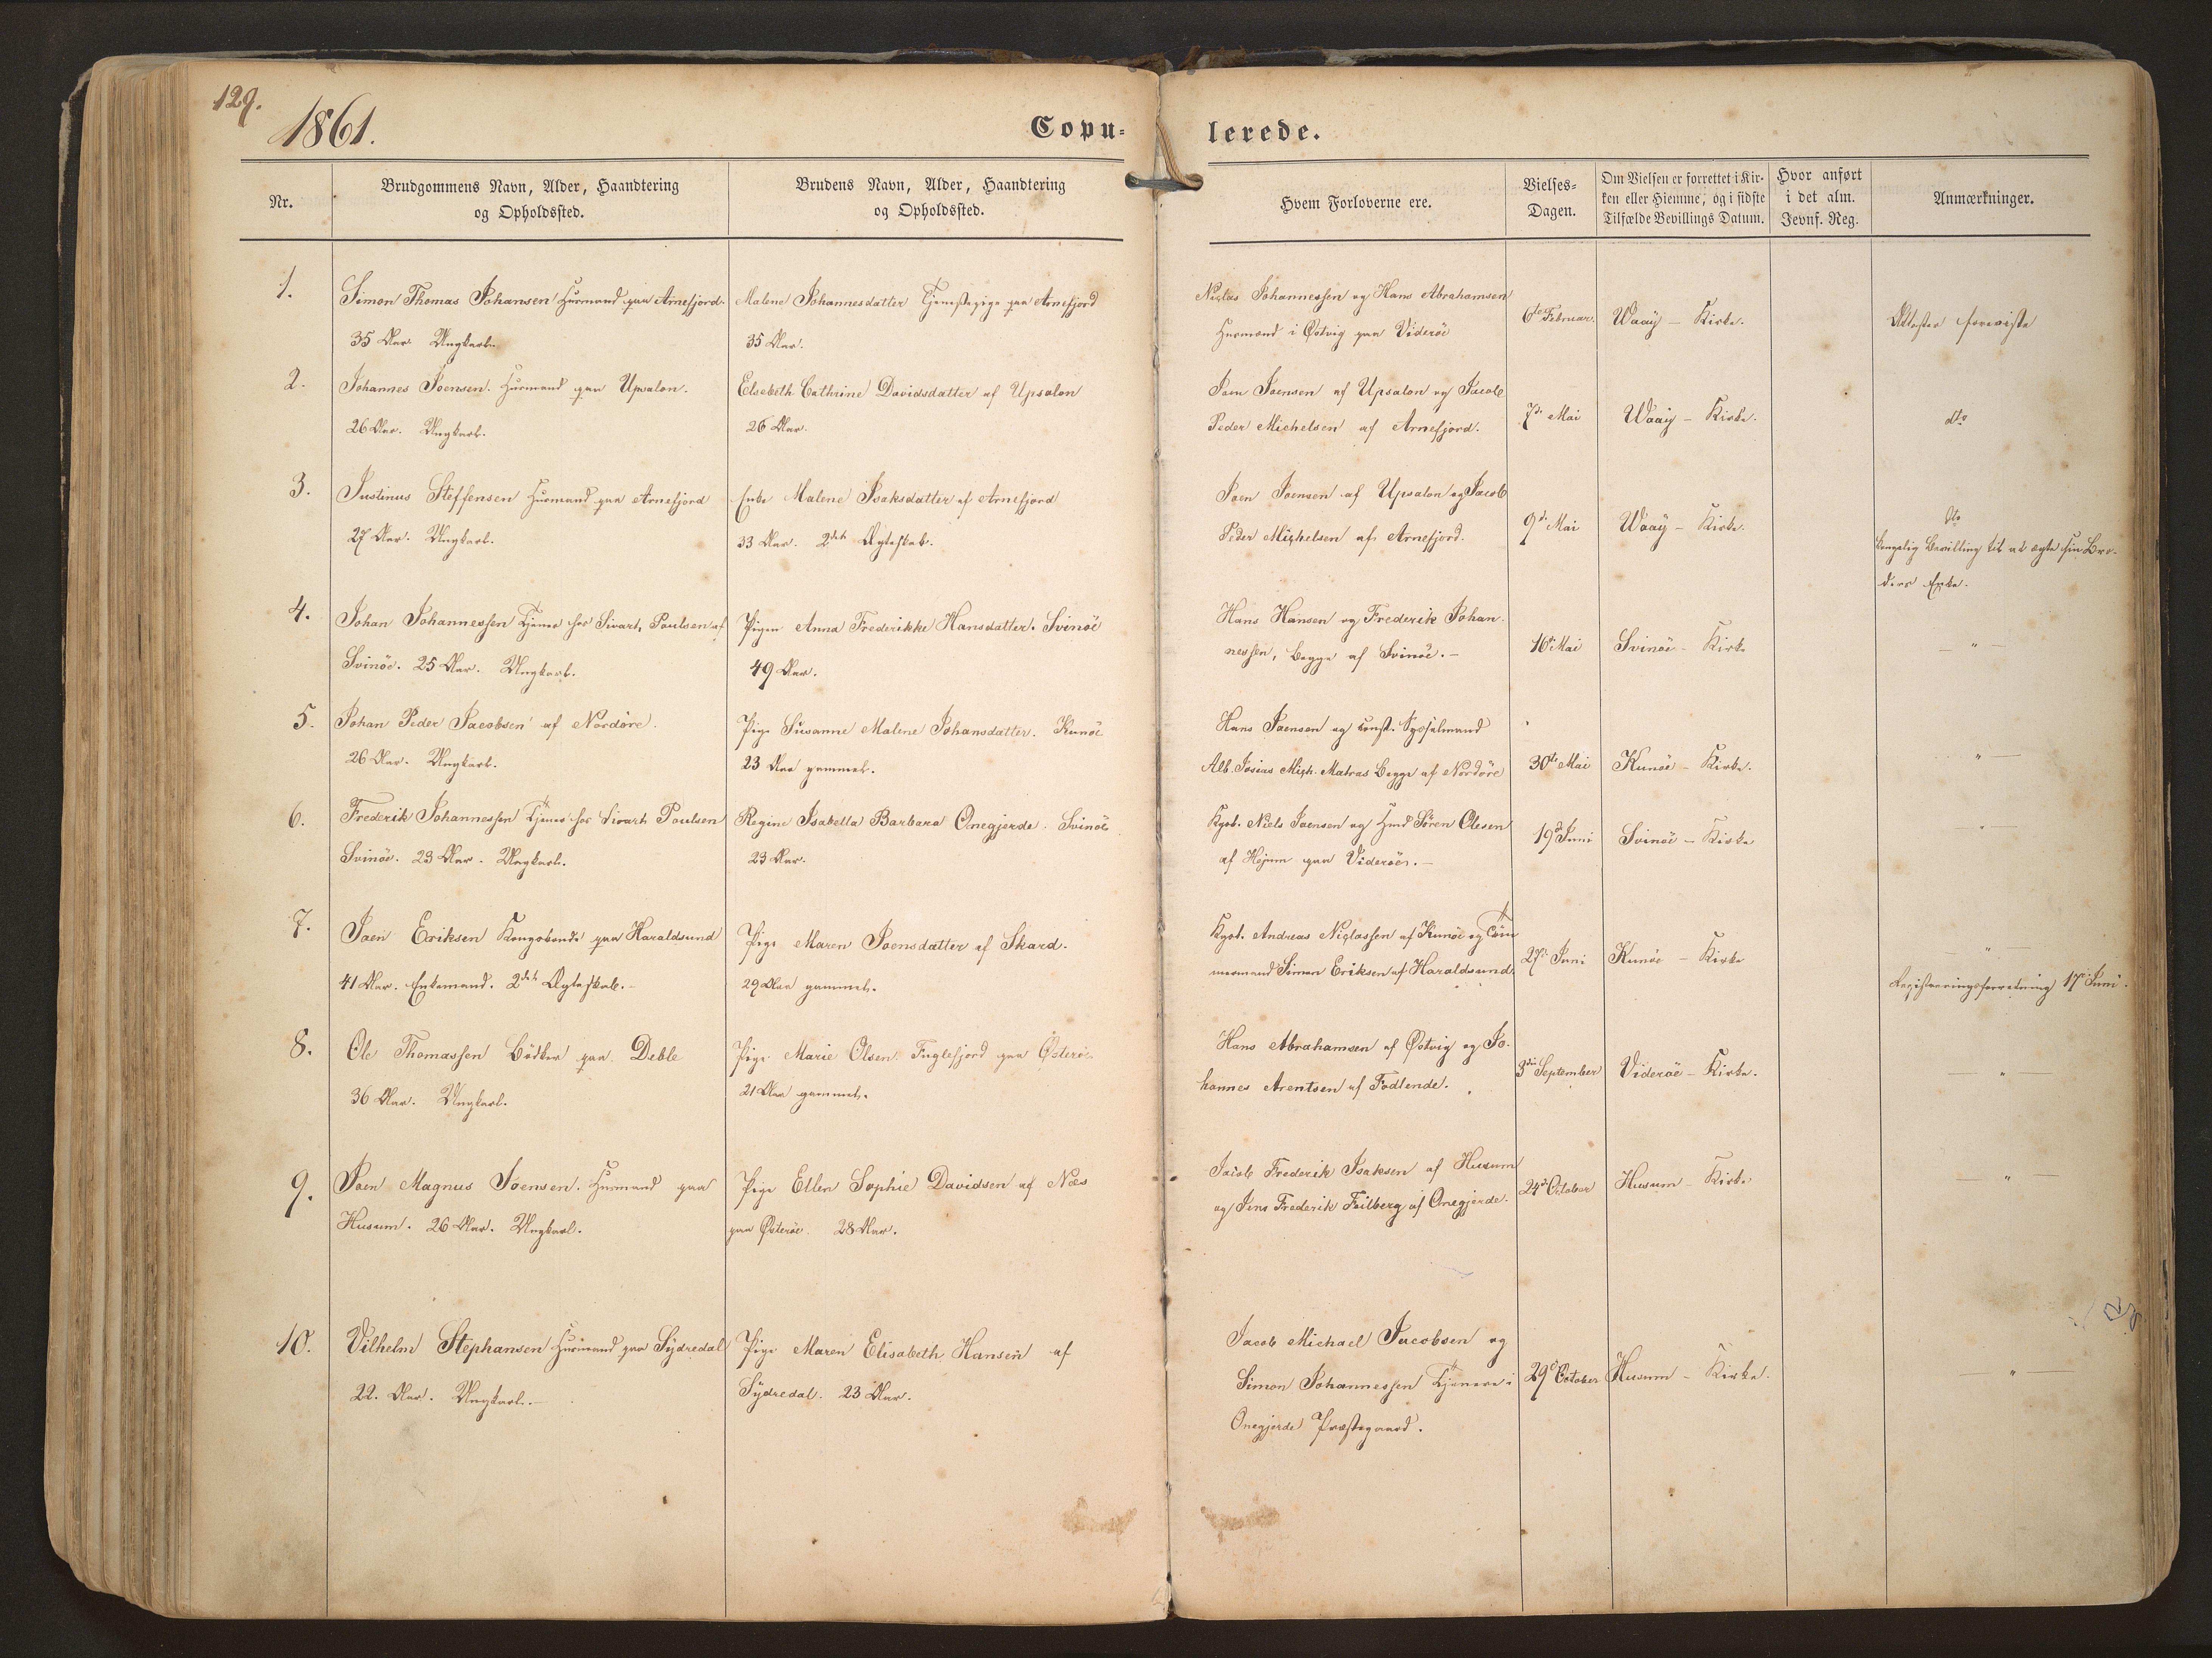 129.
1861.
Copu-
lerede.
Nr.
Brudgommens Navn, Alder, Haandtering
og Opholdssted.
Brudens Navn, Alder, Haandtering
og Opholdssted.
Hvem Forloverne ere.
Vielses-
Dagen.
Om Vielsen er forrettet i Kir-
ken eller Hiemme, og i sidste
Tilfælde Bevillings Datum.
Hvor anført
i det alm.
Jevnf. Reg.
Anmærkninger.
1.
Simon Thomas Johansen Huusmand paa Arnefjord.
35 Aar. Ungkarl.
Malene Johannesdatter Tjenestepige paa Arnefjord
35 Aar.
Niclas Johannessen og Hans Abrahamsen
Huusmænd i Østvig paa Viderøe
6te Februar.
Waaÿ – Kirke.
Attester foreviste
2.
Johannes Joensen. Huusmand paa Upsalon.
26 Aar. Ungkarl.
Elsebeth Cathrine Davidsdatter af Upsalon
26 Aar.
Joen Joensen af Upsalon og Jacob
Peder Michelsen af Arnefjord.
7de Mai
Waaÿ – Kirke.
dto
3.
Justinus Steffensen Huusmand paa Arnefjord
27 Aar. Ungkarl.
Enke Malene Isaksdatter af Arnefjord
33 Aar. 2det Ægteskab.
Joen Joensen af Upsalon og Jacob
Peder Michelsen af Arnefjord.
9de Mai
Waaÿ – Kirke.
dto
kongelig Bevilling til at ægte sin Bro-
ders Enke.
4.
Johan Johannessen Tjener hos Sivart Poulsen af
Svinöe. 25 Aar. Ungkarl.
Pigen Anna Frederikke Hansdatter. Svinöe
49 Aar.
Hans Hansen og Frederik Johan-
nessen, begge af Svinöe. –
16de Mai
Svinöe – Kirke
– " –
5.
Johan Peder Jacobsen af Nordöre.
26 Aar. Ungkarl.
Pige Susanne Malene Johansdatter. Kunöe
23 Aar gammel.
Hans Joensen og const. Sysselmand
Alb. Josias Mich. Matras begge af Nordöre
30te Mai
Kunöe – Kirke.
" –
6.
Frederik Johannessen Tjener hos Sivart Poulsen
Svinöe. 23 Aar. Ungkarl.
Regine Isabella Barbara Onegjerde. Svinöe
23 Aar.
Kgsb. Niels Joensen og Hmd Sören Olesen
af Hejum paa Videröe. –
19de Juni
Svinöe – Kirke
" –
7.
Joen Eriksen Kongsbonde paa Haraldsund
41 Aar. Enkemand. 2det Ægteskab. –
Pige Maren Joensdatter af Skard.
29 Aar gammel.
Kgsb. Andreas Niclassen af Kunöe og Töm-
mermand Simon Eriksen af Haraldsund.
27de Juni
Kunöe – Kirke
" –
Registreringsforretning 17de Juni.
8.
Ole Thomassen Bödker paa Deble
36 Aar. Ungkarl.
Pige Marie Olsen. Fuglefjord paa Østeröe
21 Aar gammel.
Hans Abrahamsen af Østvig og Jo-
hannes Arentsen af Fodlende.
3die September
Videröe – Kirke.
– " –
9.
Joen Magnus Joensen. Huusmand paa
Husum. 26 Aar. Ungkarl.
Pige Ellen Sophie Davidsen af Næs
paa Østeröe. 28 Aar.
Jacob Frederik Isaksen af Husum
og Jens Frederik Feilberg af Onegjerde.
24de October
Husum – Kirke
– " –
10.
Vilhelm Stephansen Huusmand paa Sÿdredal
22. Aar. Ungkarl. –
Pige Maren Elisabeth Hansen af
Sÿdredal. 23 Aar.
Jacob Michael Jacobsen og
Simon Johannessen Tjenere i
Onegjerde Præstegaard.
29de October
Husum – Kirke.
– " –